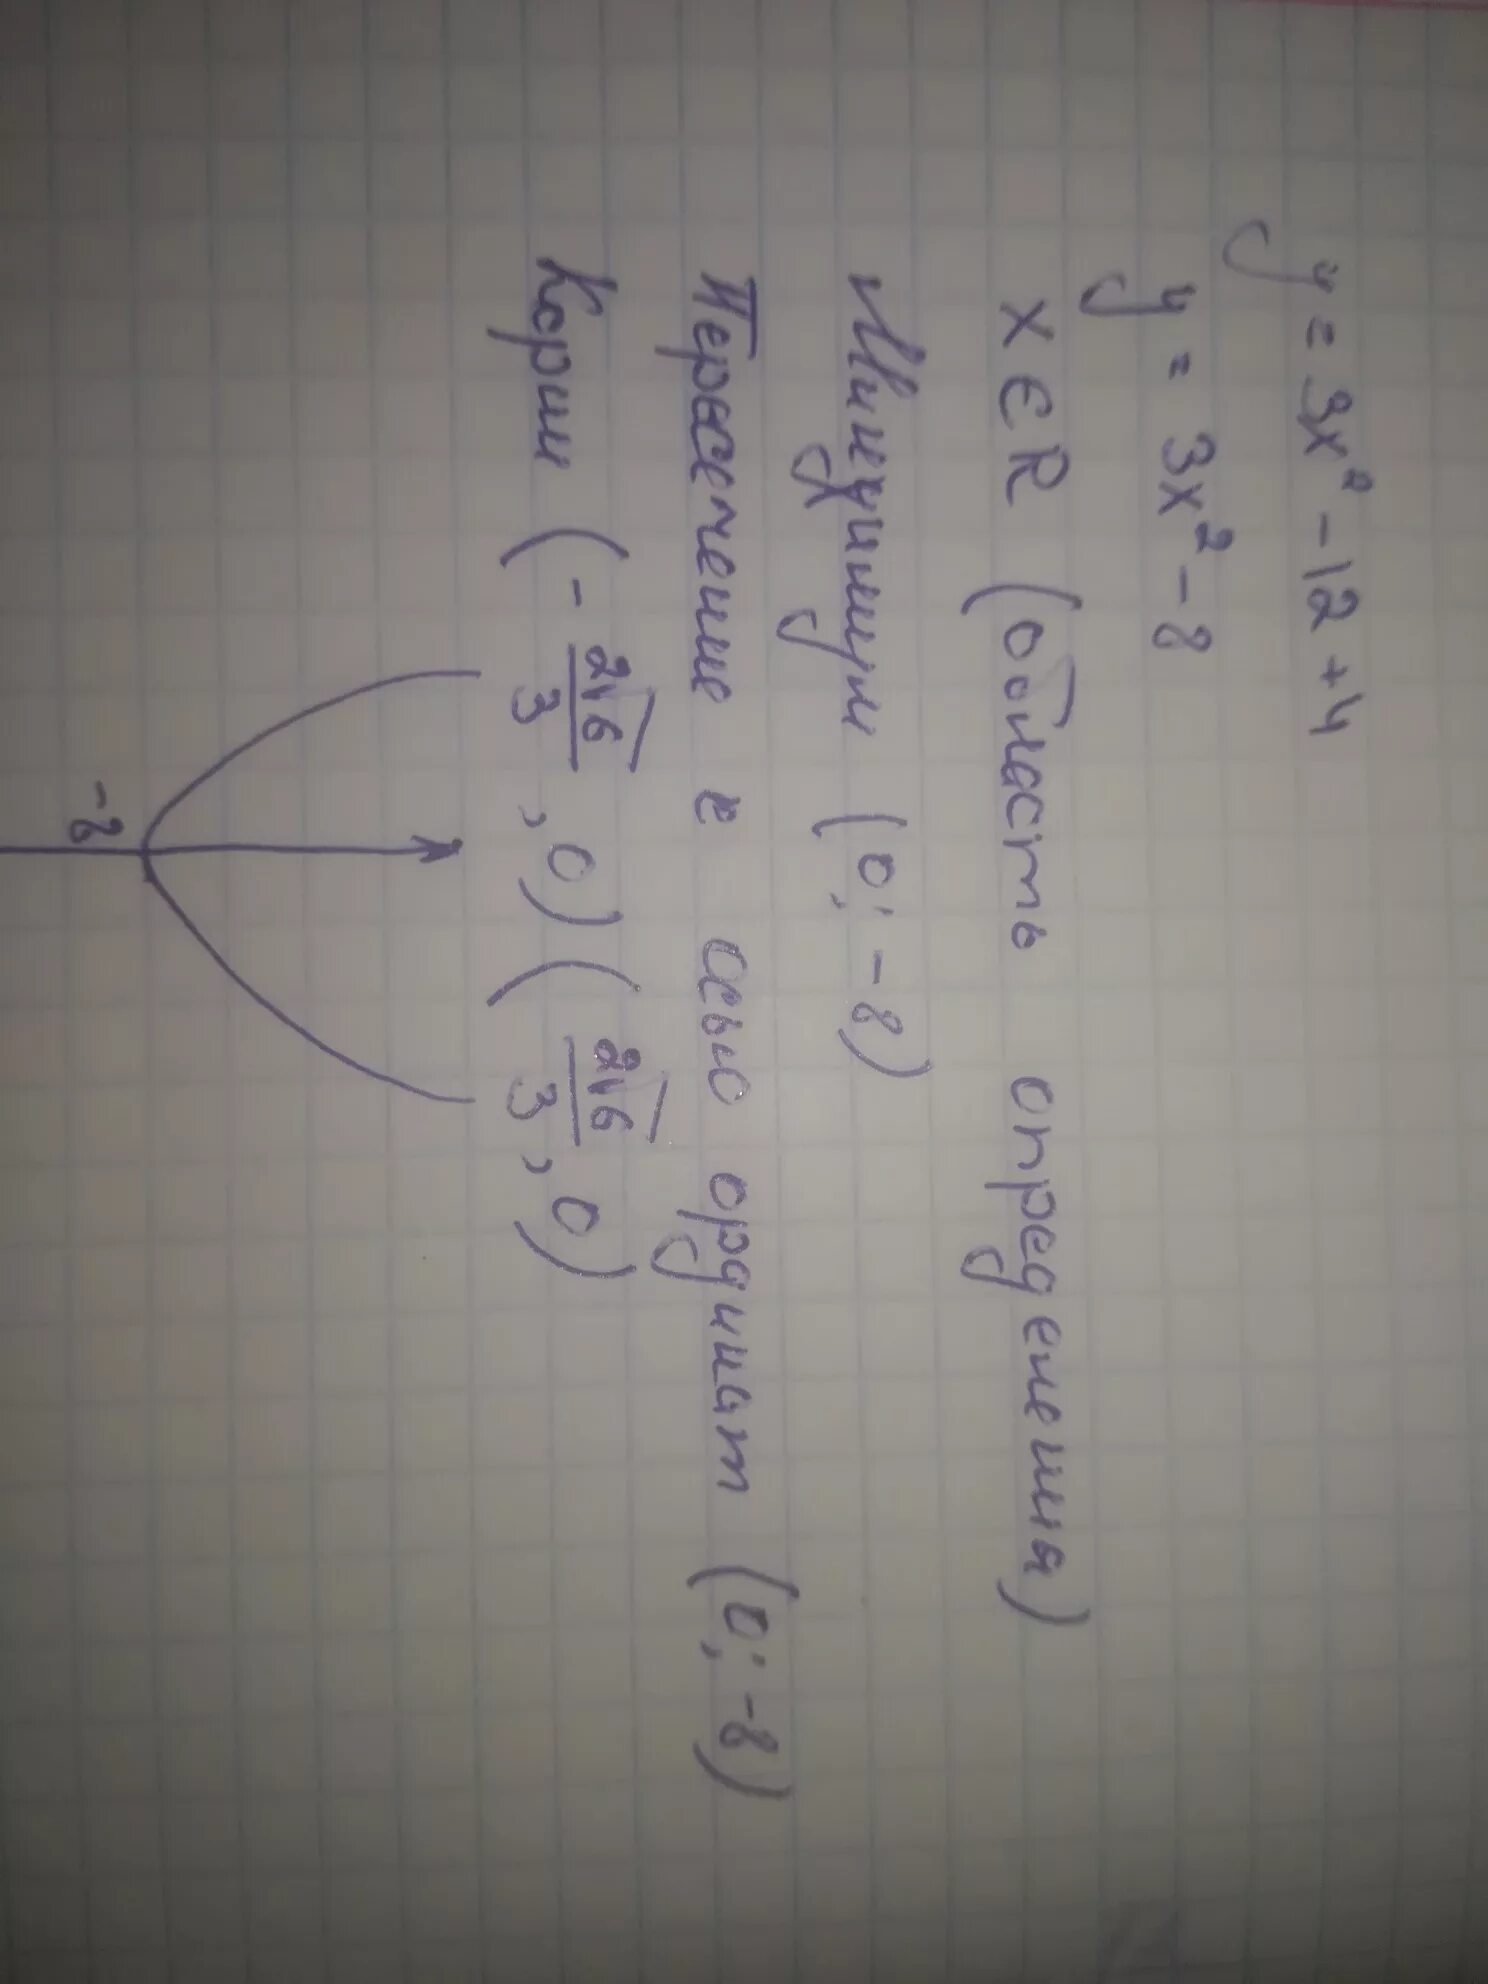 y = 3x² - 12 + 4
y = 3x² - 8
x ∈ R (область определения)
Минимум (0; -8)
Пересечение с осью ординат (0; -8)
Корни (- 2√6/3, 0) (2√6/3, 0)
-8